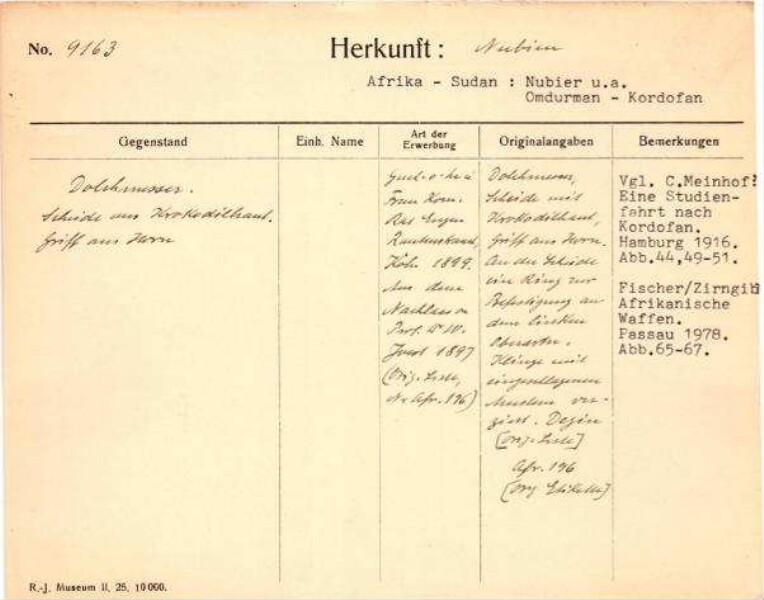 No. 9163 Herkunft: Nubien
Afrika - Sudan : Nubier u.a.
Omdurman - Kordofan
Gegenstand
Einh. Name
Art der
Erwerbung
Originalangaben
Bemerkungen
Dolchmesser.
Scheide aus Krokodilhaut.
Griff aus Horn
Frau Kom.
Rat Eugen
Rautenstrauch,
Köln 1899.
Aus dem
Nachlass v
Prof. Dr W.
Joest 1897
(Orig. Liste,
No Afr. 196)
Dolchmesser,
Scheide mit
Krokodilhaut,
Griff aus Horn.
An der Scheide
ein Ring zur
Befestigung an
dem linken
Oberarm.
Klinge mit
eingeschlagenen
Mustern ver-
ziert.
[Orig. Liste]
Afr. 196
[Orig. Etikette]
Vgl. C.Meinhof:
Eine Studien-
fahrt nach
Kordofan.
Hamburg 1916.
Abb.44,49-51.
Fischer/Zirngibl
Afrikanische
Waffen.
Passau 1978.
Abb.65-67.
R.-J. Museum II, 25, 10000.